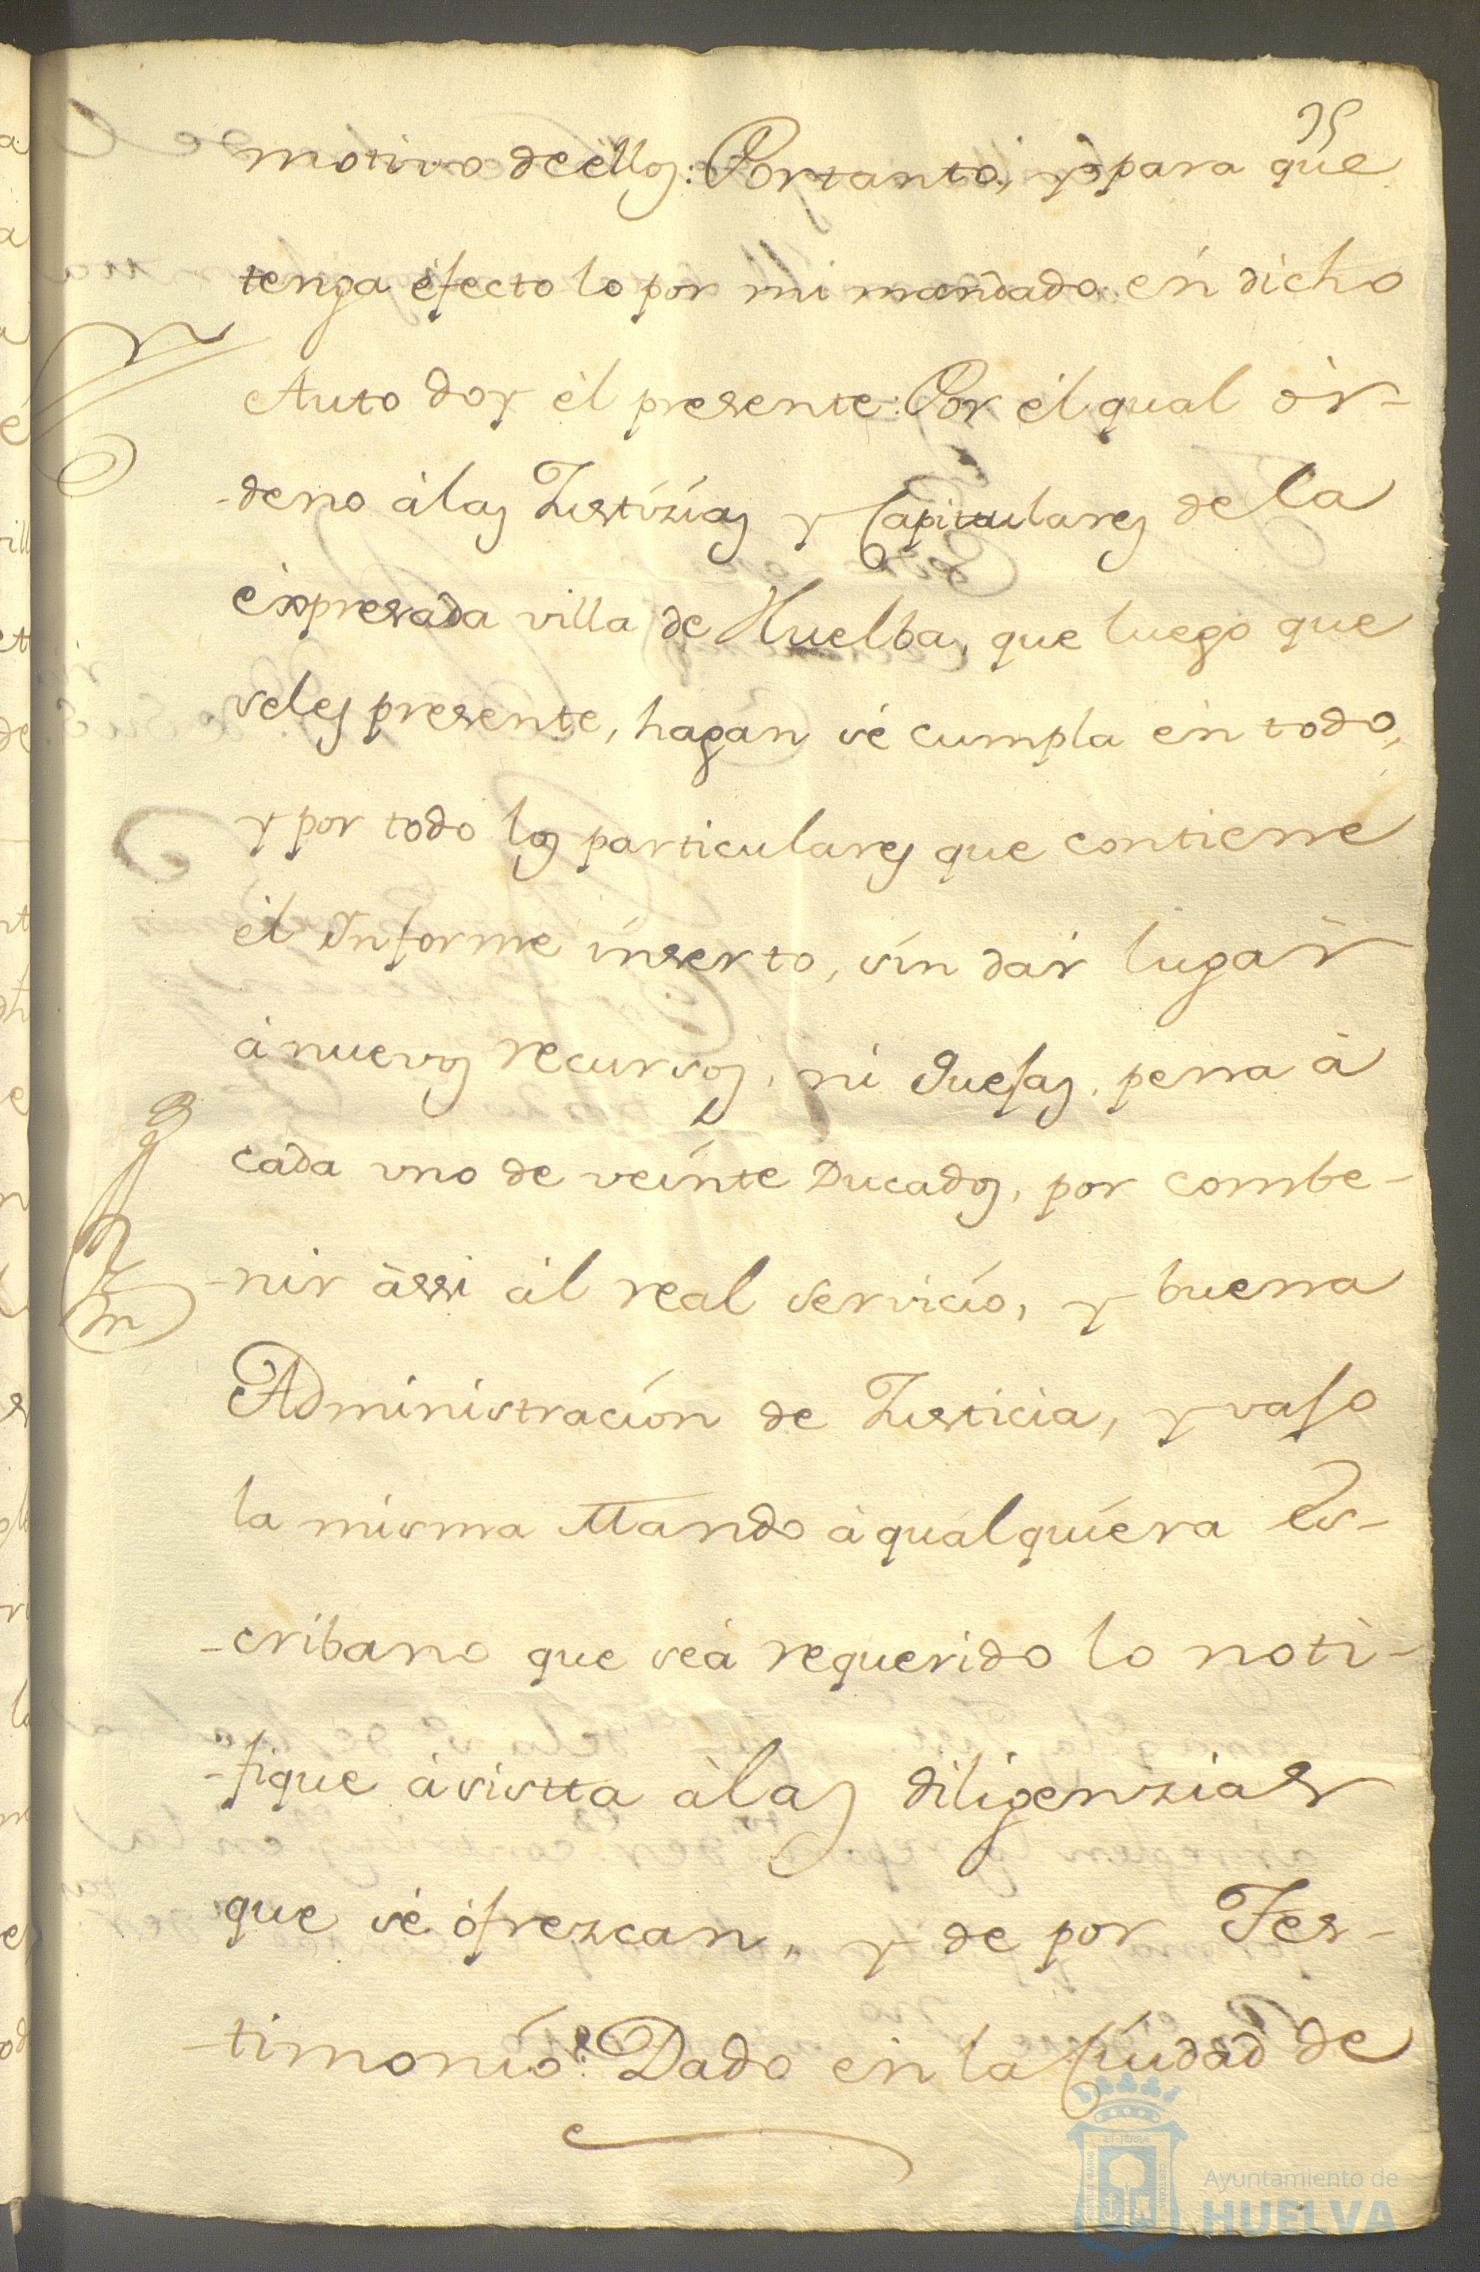 motivo deellos: Portanto, y para que
tenga éfecto lo por mi mandado en dicho
Auto doy él presente: Por él qual òr-
-deno àlas Justizias y Capitulares de la
éxpresada villa de Huelba, que luego que
seles presente, hagan sé cumpla én todo,
y por todo los particulares que contiene
él Informe inserto, sin dár lugar
à nuevos recursos, ni Quejas, pena à
cada uno de veinte Ducados, por combe-
-nir àssi àl real servicio, y buena
Administración de Justicia, y vajo
la misma Mando à qualquiera Es-
-cribano que seà requerido lo noti-
-fique àsistta àlas diligenzias
que sé ófrezcan, y de por Tes-
-timonio: Dado en la Ciudad de
Ayuntamiento de
HUELVA